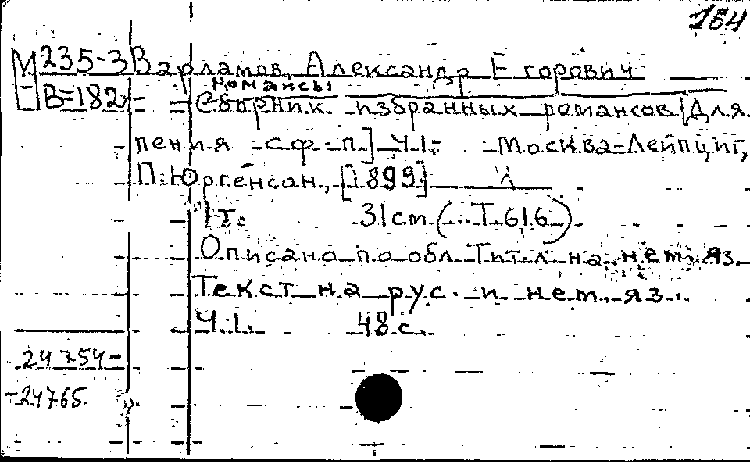 184
М 235-3 Варламов, Александр Егорович
В=182 Романсы
Сборник избранных романсов [Для
пения с ф-п.] Ч.1. Москва-Лейпциг,
П. Юргенсон, [1899]
1 т. 31 cm (Т. 616)
Описано по обл. Тит. л. на нем. яз.
Текст на рус. и нем. яз.
Ч.1. 48 с.
24754-
-24765.